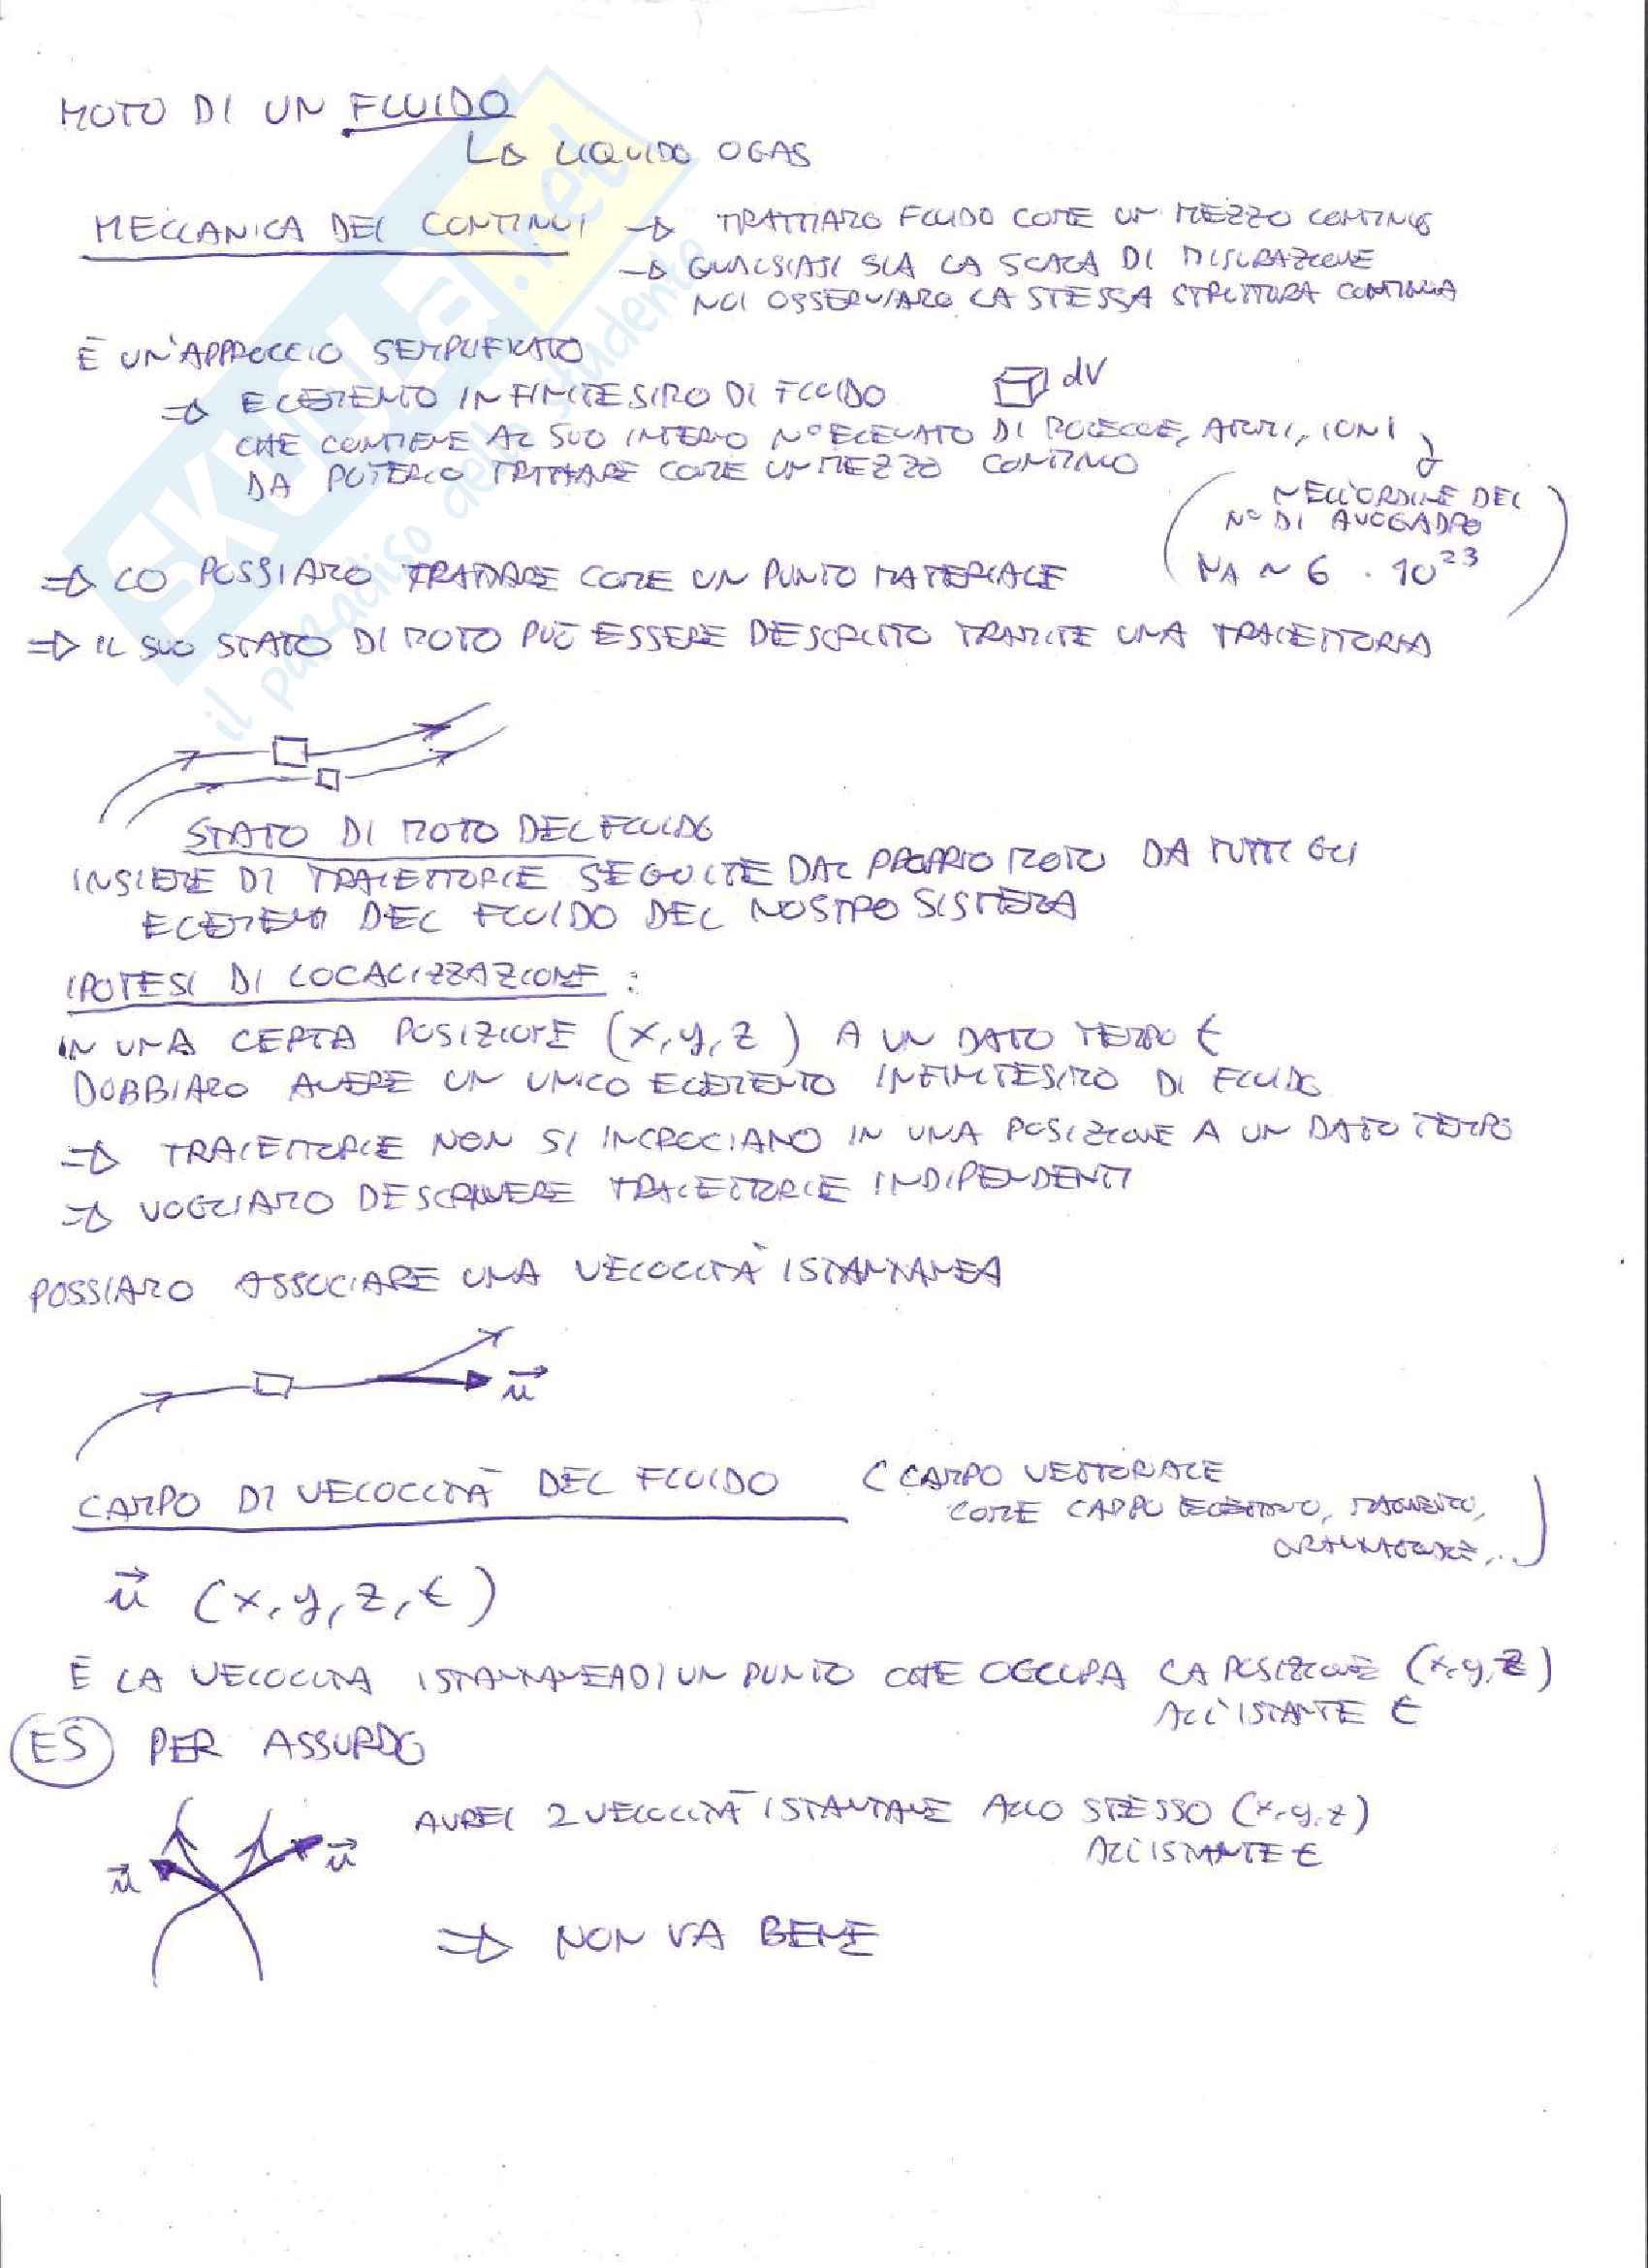 MOTO DI UN FLUIDO
↳ LIQUIDO O GAS
MECCANICA DEI CONTINUI → TRATTIAMO FLUIDO COME UN MEZZO CONTINUO
→ QUALSIASI SIA LA SCALA DI MISURAZIONE
NOI OSSERVIAMO LA STESSA STRUTTURA CONTINUA
È UN'APPROCCIO SEMPLIFICATO
⇒ ELEMENTO INFINITESIMO DI FLUIDO dV
CHE CONTIENE AL SUO INTERNO N° ELEVATO DI MOLECOLE, ATOMI, IONI
DA POTERLO TRATTARE COME UN MEZZO CONTINUO
(NELL'ORDINE DEL
N° DI AVOGADRO
NA ~ 6 · 10²³)
⇒ LO POSSIAMO TRATTARE COME UN PUNTO MATERIALE
⇒ IL SUO STATO DI MOTO PUÒ ESSERE DESCRITTO TRAMITE UNA TRAIETTORIA
STATO DI MOTO DEL FLUIDO
INSIEME DI TRAIETTORIE SEGUITE DAL PROPRIO MOTO DA TUTTI GLI
ELEMENTI DEL FLUIDO DEL NOSTRO SISTEMA
IPOTESI DI LOCALIZZAZIONE :
IN UNA CERTA POSIZIONE (x, y, z) A UN DATO TEMPO t
DOBBIAMO AVERE UN UNICO ELEMENTO INFINITESIMO DI FLUIDO
⇒ TRAIETTORIE NON SI INCROCIANO IN UNA POSIZIONE A UN DATO TEMPO
⇒ VOGLIAMO DESCRIVERE TRAIETTORIE INDIPENDENTI
POSSIAMO ASSOCIARE UNA VELOCITÀ ISTANTANEA
u⃗
CAMPO DI VELOCITÀ DEL FLUIDO (CAMPO VETTORIALE
COME CAMPO ELETTRICO, MAGNETICO,
GRAVITAZIONALE,...)
u⃗ (x, y, z, t)
È LA VELOCITÀ ISTANTANEA DI UN PUNTO CHE OCCUPA LA POSIZIONE (x, y, z)
ALL'ISTANTE t
ES PER ASSURDO
AVREI 2 VELOCITÀ ISTANTANEE ALLO STESSO (x, y, z)
ALL'ISTANTE t
u⃗ u⃗
⇒ NON VA BENE
SKUOLA.net
il paradiso dello studente